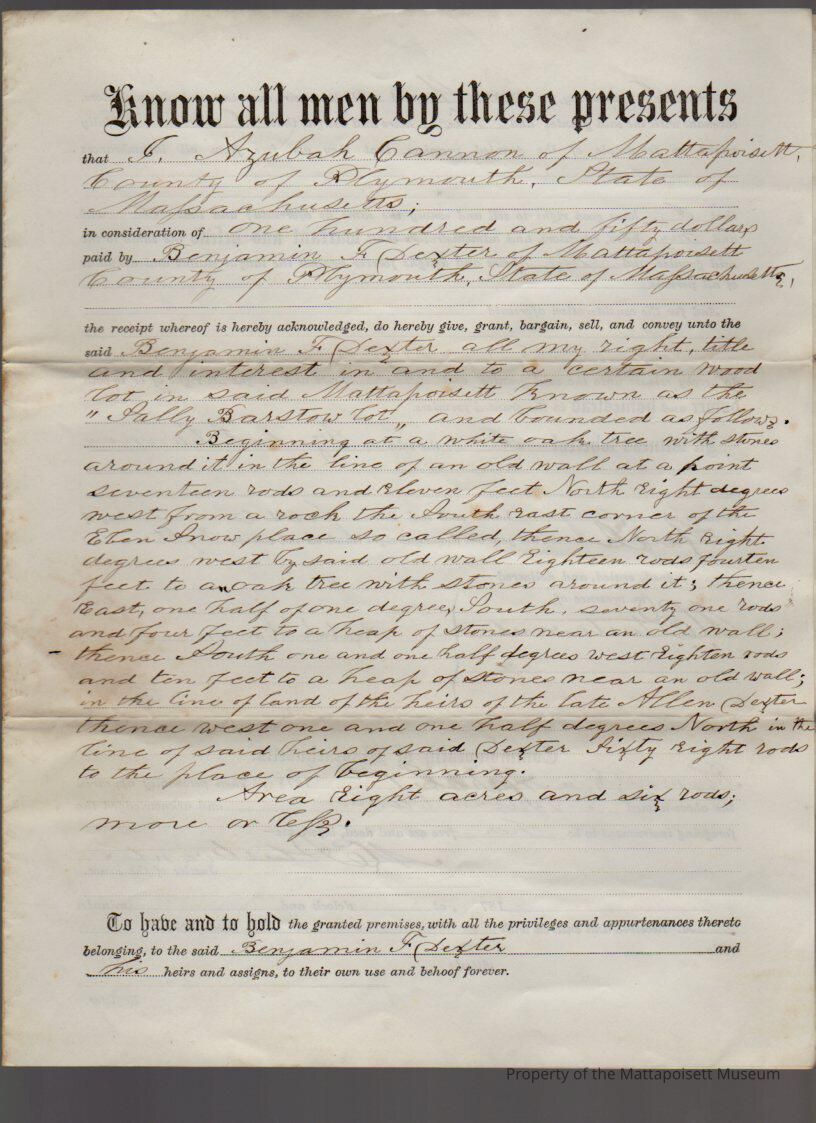 Know all men by these presents
that I, Azubah Cannon of Mattapoisett,
County of Plymouth, State of
Massachusetts;
in consideration of one hundred and fifty dollars
paid by Benjamin F Dexter of Mattapoisett
County of Plymouth, State of Massachusetts,
the receipt whereof is hereby acknowledged, do hereby give, grant, bargain, sell, and convey unto the
said Benjamin F Dexter all my right, title
and interest in and to a certain wood
lot in said Mattapoisett known as the
"Sally Barstow lot" and bounded as follows.
Beginning at a white oak tree with stones
around it in the line of an old wall at a point
seventeen rods and eleven feet North Eight degrees
west from a rock the South East corner of the
Eben Snow place so called, thence North Eight
degrees west by said old wall Eighteen rods fourten
feet to an oak tree with stones around it; thence
East, one half of one degree, South, seventy one rods
and four feet to a heap of stones near an old wall;
thence South one and one half degrees west Eighten rods
and ten feet to a heap of stones near an old wall;
in the line of land of the heirs of the late Allen Dexter
thence west one and one half degrees North in the
line of said heirs of said Dexter Sixty Eight rods
to the place of beginning.
Area Eight acres and six rods;
more or less.
To have and to hold the granted premises, with all the privileges and appurtenances thereto
belonging, to the said Benjamin F Dexter and
his heirs and assigns, to their own use and behoof forever.
Property of the Mattapoisett Museum